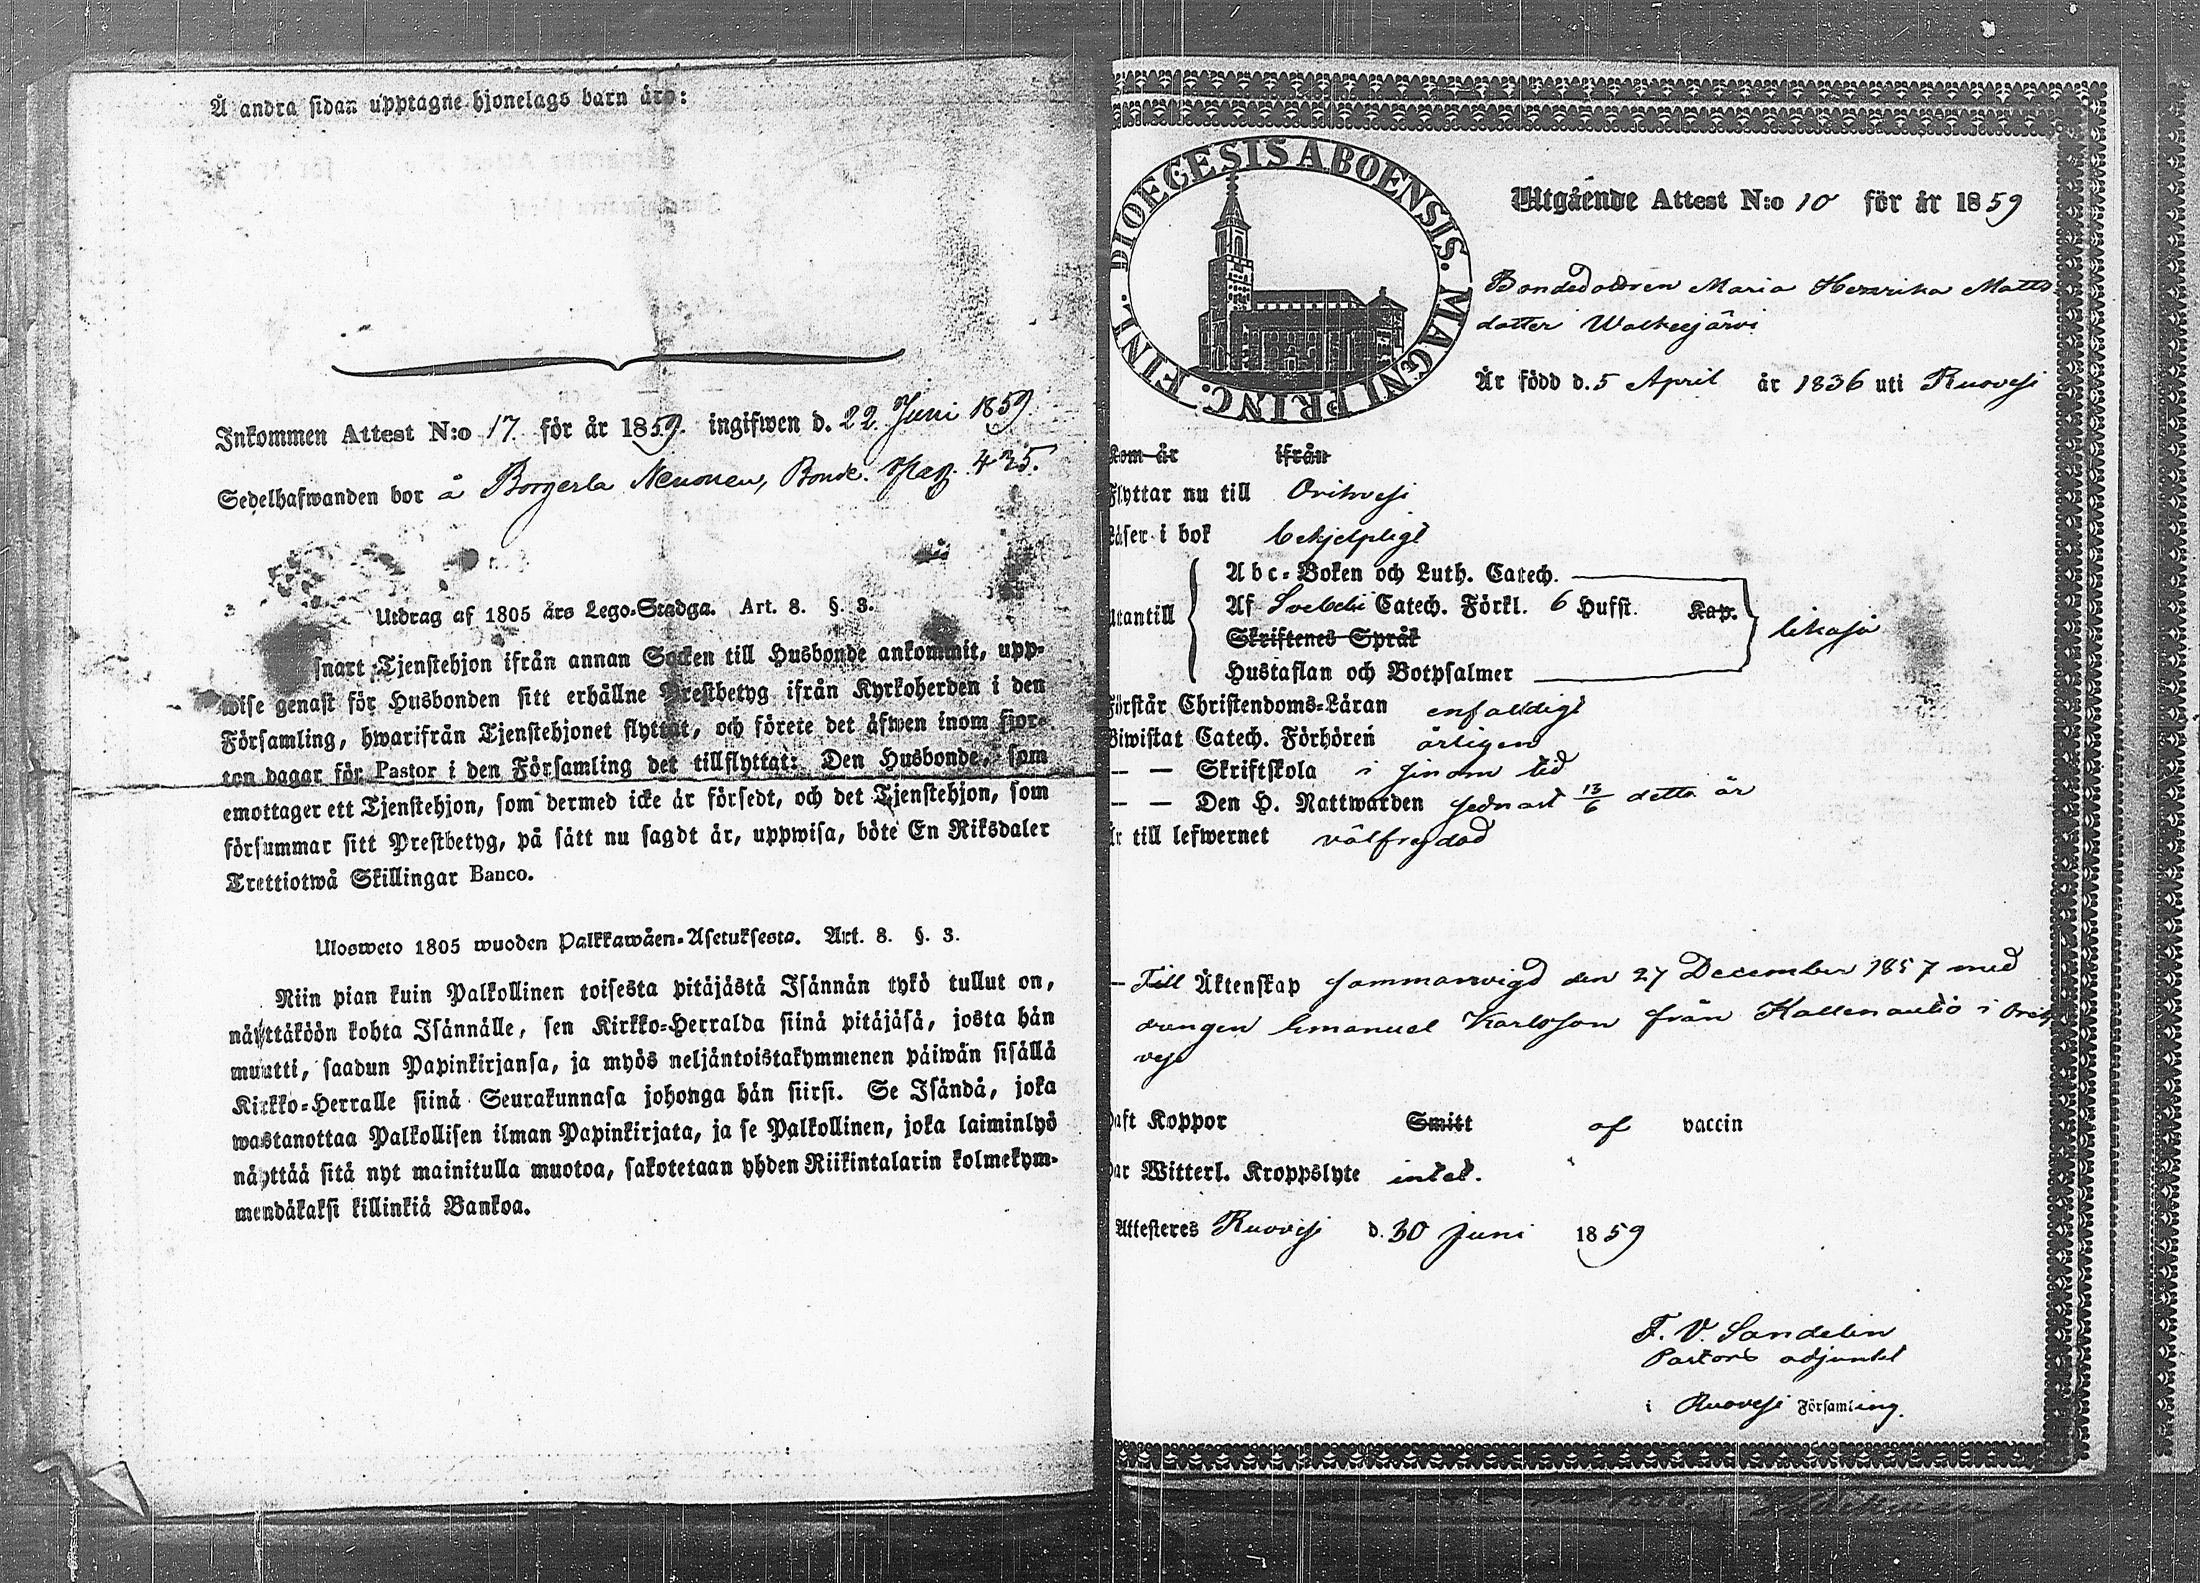 Å andra sidan upptagne hjonelags barn äro:
Inkommen Attest N:o 17. för år 1859. ingifwen d. 22 Juni 1859.
Sedelhafwanden bor å Borgerla Neuonen, Bonde. pag. 435.
Utdrag af 1805 års Lego-Stadga. Art. 8. §. 3.
snart Tjenstehjon ifrån annan Socken till Husbonde ankommit, upp-
wise genast för Husbonden sitt erhållne Prestbetyg ifrån Kyrkoherden i den
Församling, hwarifrån Tjenstehjonet flyttat, och förete det äfwen inom fjor-
ton dagar för Pastor i den Församling det tillflyttat: Den Husbonde, som
emottager ett Tjenstehjon, som dermed icke är försedt, och det Tjenstehjon, som
försummar sitt Prestbetyg, på sätt nu sagdt är, uppwisa, böte En Riksdaler
Trettiotwå Skillingar Banco.
Ulosweto 1805 wuoden Palkkawäen-Asetuksesta. Art. 8. §. 3.
Niin pian kuin Palkollinen toisesta pitäjästä Isännän tykö tullut on,
näyttäköön kohta Isännälle, sen Kirkko-Herralda siinä pitäjäsä, josta hän
muutti, saadun Papinkirjansa, ja myös neljäntoistakymmenen päiwän sisällä
Kirkko-Herralle siinä Seurakunnasa johonga hän siirsi. Se Isändä, joka
wastanottaa Palkollisen ilman Papinkirjata, ja se Palkollinen, joka laiminlyö
näyttää sitä nyt mainitulla muotoa, sakotetaan yhden Riikintalarin kolmekym-
mendäkaksi killinkiä Bankoa.
DIOECESIS ABOENSIS. MAGNI PRINC. FINL.
Utgående Attest N:o 10 för år 1859
Bondedottren Maria Henrika Matts
dotter Walkeejärvi
Är född d. 5 April år 1836 uti Ruovesi
kom är ifrån
Flyttar nu till Orihvesi
Läser i bok behjelpligt
Utantill
Abc-Boken och Luth. Catech.
Af Svebelii Catech. Förkl. 6 Hufst. Kap.
Skriftenes Språk
Hustaflan och Botpsalmer
likaså
Förstår Christendoms-Läran enfaldigt
Biwistat Catech. Förhören årligen
— — Skriftskola i sinom tid
— — Den H. Nattwarden sednast 13/6 detta år
Är till lefwernet välfrejdad
— Till Äktenskap sammanvigd den 27 December 1857 med
drängen Emanuel Karlsson från Kallenautio i Orih
vesi
Haft Koppor Smitt af vaccin
Har Witterl. Kroppslyte intet.
Attesteres Ruovesi d. 30 Juni 1859
F. V. Sandelin
Pastors adjunkt
i Ruovesi Församling.